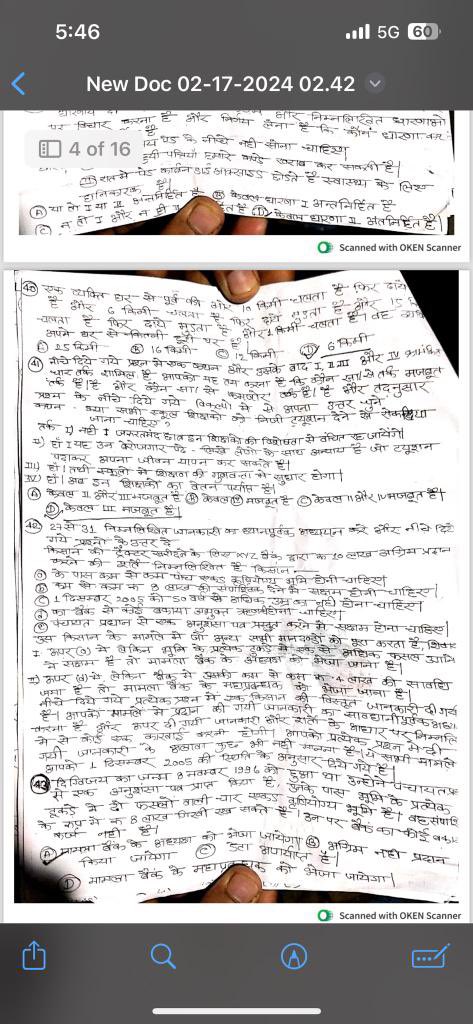 5:46
5G 60
New Doc 02-17-2024 02.42
4 of 16
पर विचार करना है और निर्णय लेना है कि कौन धारणा
पेड़ के नीचे नहीं सोना चाहिए।
हानिकारक है।
Ⓐ या तो I या II अन्तर्निहित है Ⓑ केवल धारणा I अन्तर्निहित है
Ⓒ न तो I और न ही II Ⓓ केवल धारणा II अंतर्निहित है।
Scanned with OKEN Scanner
40 एक व्यक्ति घर से पूर्व की ओर किमी चलता है फिर दायें
है और 6 किमी चलता है फिर दायें मुड़ता है और 15
चलता है फिर दायें मुड़ता है और 1 किमी चलता है। वह अब
अपने घर से कितनी दूरी पर है
15 किमी Ⓑ 16 किमी Ⓒ 12 किमी Ⓓ 6 किमी
41 नीचे दिये गये प्रश्न में एक कथन और उसके बाद I, II, III और IV क्रमांकित
चार तर्क शामिल हैं, आपको यह तय करना है कि कौन सा/से तर्क मजबूत
तर्क है/हैं और कौन सा/से कमजोर तर्क है/हैं और तदनुसार
प्रश्न के नीचे दिये गये विकल्पों में से अपना उत्तर चुनें
कथन - क्या सभी स्कूल शिक्षकों को निजी ट्यूशन देने से रोक दिया
जाना चाहिए?
तर्क I) नहीं। जरूरतमंद छात्र इन शिक्षकों की विशेषता से वंचित रह जायेंगे।
II) हाँ। यह उन बेरोजगार पढ़े-लिखे लोगों के साथ अन्याय है जो ट्यूशन
पढ़ाकर अपना जीवन यापन कर सकते हैं।
III) हाँ। तभी स्कूलों में शिक्षा की गुणवत्ता में सुधार होगा।
IV) हाँ। अब इन शिक्षकों का वेतन पर्याप्त है।
Ⓐ केवल II और III मजबूत हैं Ⓑ केवल मजबूत है Ⓒ केवल II और IV मजबूत हैं।
Ⓓ केवल III मजबूत है।
42 से 31 निम्नलिखित जानकारी का ध्यानपूर्वक अध्ययन करें और नीचे दिये
गये प्रश्नों के उत्तर दें
किसान को ट्रैक्टर खरीदने के लिए XYZ बैंक द्वारा रू 10 लाख अग्रिम प्रदान
करने की शर्तें निम्नलिखित हैं किसान—
ⓐ के पास कम से कम पाँच एकड़ कृषियोग्य भूमि होनी चाहिए।
ⓑ कम से कम रू 8 लाख की संपार्श्विक देने में सक्षम होनी चाहिए।
Ⓒ 1 दिसम्बर 2005 को 50 वर्ष से अधिक उम्र का नहीं होना चाहिए।
ⓓ का बैंक से कोई बकाया अभुक्त ऋण नहीं होना चाहिए।
ⓔ पंचायत प्रधान से एक अनुशंसा पत्र प्रस्तुत करने में सक्षम होना चाहिए।
उस किसान के मामले में जो अन्य सभी मानदण्डों को पूरा करता है, सिवाय
I ऊपर (a) में लेकिन भूमि के प्रत्येक टुकड़े में एक से अधिक फसल उगाने
में सक्षम है तो मामला बैंक के अध्यक्ष को भेजा जाना है।
II ऊपर (b) में लेकिन बैंक में उसकी कम से कम रू 4 लाख की सावधि
जमा है। तो मामला बैंक के महाप्रबन्धक को भेजा जाना है।
नीचे दिये गये प्रत्येक प्रश्न में एक किसान की विस्तृत जानकारी दी गयी
है। आपको मामले में प्रदान की गयी जानकारी का सावधानीपूर्वक अध्ययन
करना है और ऊपर दी गयी जानकारी और शर्तों के आधार पर निम्नलि
में से कोई एक कारवाई करनी होगी। आपको प्रत्येक प्रश्न में दी
गयी जानकारी के अलावा कुछ भी नहीं मानना है। ये सभी मामले
आपको 1 दिसम्बर 2005 की स्थिति के अनुसार दिये गये हैं।
43 दिग्विजय का जन्म 8 नवम्बर 1996 को हुआ था उन्होंने पंचायत प्र
से एक अनुशंसा पत्र प्राप्त किया है, उनके पास भूमि के प्रत्येक
टुकड़े में दो फसलों वाली चार एकड़ कृषियोग्य भूमि है। वह संपार्श्वि
के रूप में रू 8 लाख गिरवी रख सकते हैं। उन पर बैंक का कोई बका
कर्ज नहीं है।
Ⓐ मामला बैंक के अध्यक्ष को भेजा जायेगा। Ⓑ अग्रिम नहीं प्रदान
किया जायेगा Ⓒ डेटा अपर्याप्त है।
Ⓓ मामला बैंक के महाप्रबन्धक को भेजा जायेगा।
Scanned with OKEN Scanner